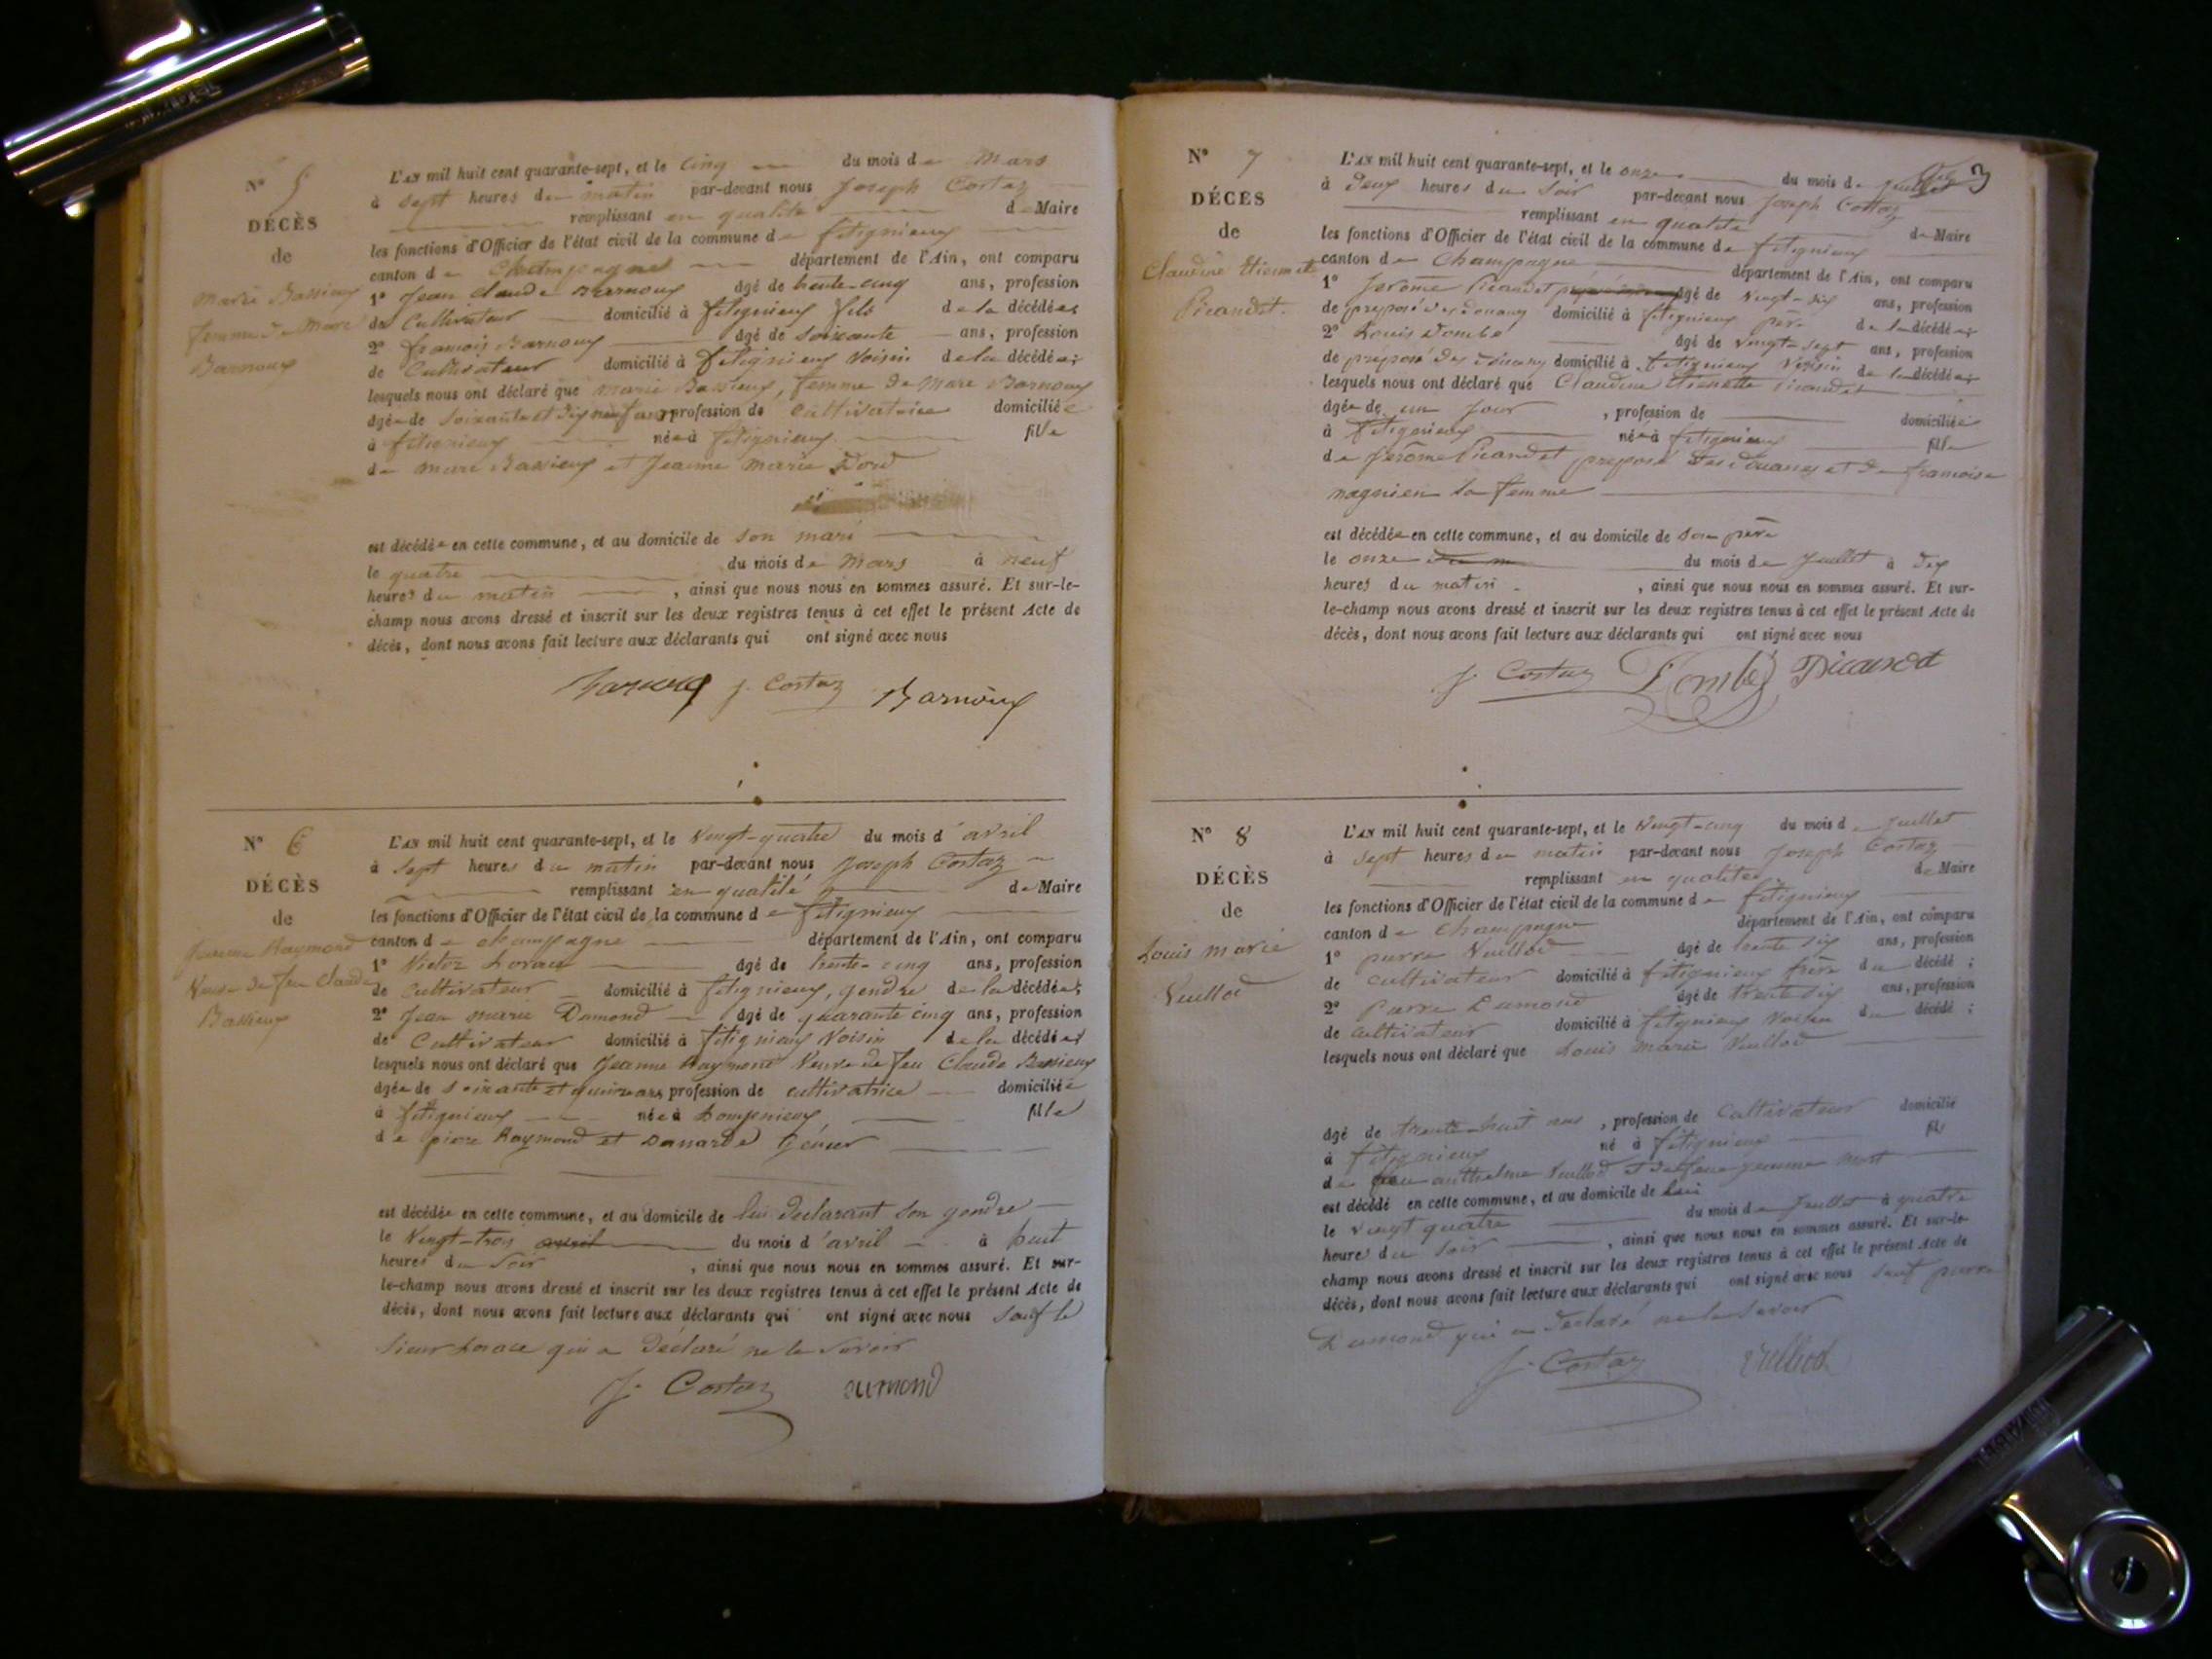 N° 5
DÉCÈS
de
Marie Bassieux
femme de Marc
Barnoux
L'AN mil huit cent quarante-sept, et le cinq du mois de Mars
à sept heures du matin par-devant nous Joseph Costaz
remplissant en qualité de Maire
les fonctions d'Officier de l'état civil de la commune de fitignieux
canton de Champagne département de l'Ain, ont comparu
1° Jean Claude Barnoux âgé de trente-cinq ans, profession
de Cultivateur domicilié à fitignieux fils de la décédée;
2° francois Barnoux âgé de soixante ans, profession
de Cultivateur domicilié à fitignieux Voisin de la décédée;
lesquels nous ont déclaré que marie Bassieux, femme de Marc Barnoux
âgée de soixante et dix neuf ans profession de cultivatrice domiciliée
à fitignieux née à fitignieux fille
de marc Bassieux et Jeanne marie
est décédée en cette commune, et au domicile de son mari
le quatre du mois de Mars à neuf
heures du matin , ainsi que nous nous en sommes assuré. Et sur-le-
champ nous avons dressé et inscrit sur les deux registres tenus à cet effet le présent Acte de
décès, dont nous avons fait lecture aux déclarants qui ont signé avec nous
Barnoux J. Costaz Barnoux
N° 6
DÉCÈS
de
Jeanne Raymond
Veuve de feu Claude
Bassieux
L'AN mil huit cent quarante-sept, et le Vingt-quatre du mois d'avril
à sept heures du matin par-devant nous Joseph Costaz
remplissant en qualité de Maire
les fonctions d'Officier de l'état civil de la commune de fitignieux
canton de champagne département de l'Ain, ont comparu
1° Victor âgé de trente-cinq ans, profession
de Cultivateur domicilié à fitignieux, gendre de la décédée;
2° Jean marie Dumond âgé de quarante cinq ans, profession
de Cultivateur domicilié à fitignieux Voisin de la décédée;
lesquels nous ont déclaré que Jeanne Raymond Veuve de feu Claude Bassieux
âgée de soixante et quinze ans, profession de cultivatrice domiciliée
à fitignieux née à Lompnieux fille
de piere Raymond et
est décédée en cette commune, et au domicile de lui declarant son gendre
le Vingt-trois avril du mois d'avril à huit
heures du soir , ainsi que nous nous en sommes assuré. Et sur-
le-champ nous avons dressé et inscrit sur les deux registres tenus à cet effet le présent Acte de
décès, dont nous avons fait lecture aux déclarants qui ont signé avec nous sauf le
sieur qui a Déclaré ne le Savoir
J. Costaz Dumond
3
N° 7
DÉCÈS
de
Claudine Etiennette
Picandet.
L'AN mil huit cent quarante-sept, et le onze du mois de juillet
à deux heures du soir par-devant nous Joseph Costaz
remplissant en qualité de Maire
les fonctions d'Officier de l'état civil de la commune de fitignieux
canton de Champagne département de l'Ain, ont comparu
1° Jerome Picandet âgé de Vingt-six ans, profession
de preposé des douanes domicilié à fitignieux père de la décédée;
2° Louis Dombé âgé de Vingt-sept ans, profession
de preposé des douanes domicilié à fitignieux Voisin de la décédée;
lesquels nous ont déclaré que Claudine Etienette Picandet
âgée de un jour , profession de domiciliée
à fitignieux née à fitignieux fille
de Jerome Picandet preposé des douanes et de francoise
magnien sa femme
est décédée en cette commune, et au domicile de son père
le onze du mois de Juillet à dix
heures du matin , ainsi que nous nous en sommes assuré. Et sur-
le-champ nous avons dressé et inscrit sur les deux registres tenus à cet effet le présent Acte de
décès, dont nous avons fait lecture aux déclarants qui ont signé avec nous
J. Costaz Dombé Picandet
N° 8
DÉCÈS
de
Louis marie
Vuillod
L'AN mil huit cent quarante-sept, et le Vingt-cinq du mois de Juillet
à sept heures du matin par-devant nous Joseph Costaz
remplissant en qualité de Maire
les fonctions d'Officier de l'état civil de la commune de fitignieux
canton de Champagne département de l'Ain, ont comparu
1° pierre Vuillod âgé de trente six ans, profession
de cultivateur domicilié à fitignieux frère du décédé;
2° Pierre Dumond âgé de trente six ans, profession
de cultivateur domicilié à fitignieux Voisin du décédé;
lesquels nous ont déclaré que Louis marie Vuillod
âgé de trente-huit ans , profession de Cultivateur domicilié
à fitignieux né à fitignieux fils
de feu anthelme Vuillod jeanne
est décédé en cette commune, et au domicile de lui
le vingt quatre du mois de Juillet à quatre
heures du soir , ainsi que nous nous en sommes assuré. Et sur-le-
champ nous avons dressé et inscrit sur les deux registres tenus à cet effet le présent Acte de
décès, dont nous avons fait lecture aux déclarants qui ont signé avec nous sauf pierre
Dumond qui a declaré ne le Savoir
J. Costaz Vuilliod